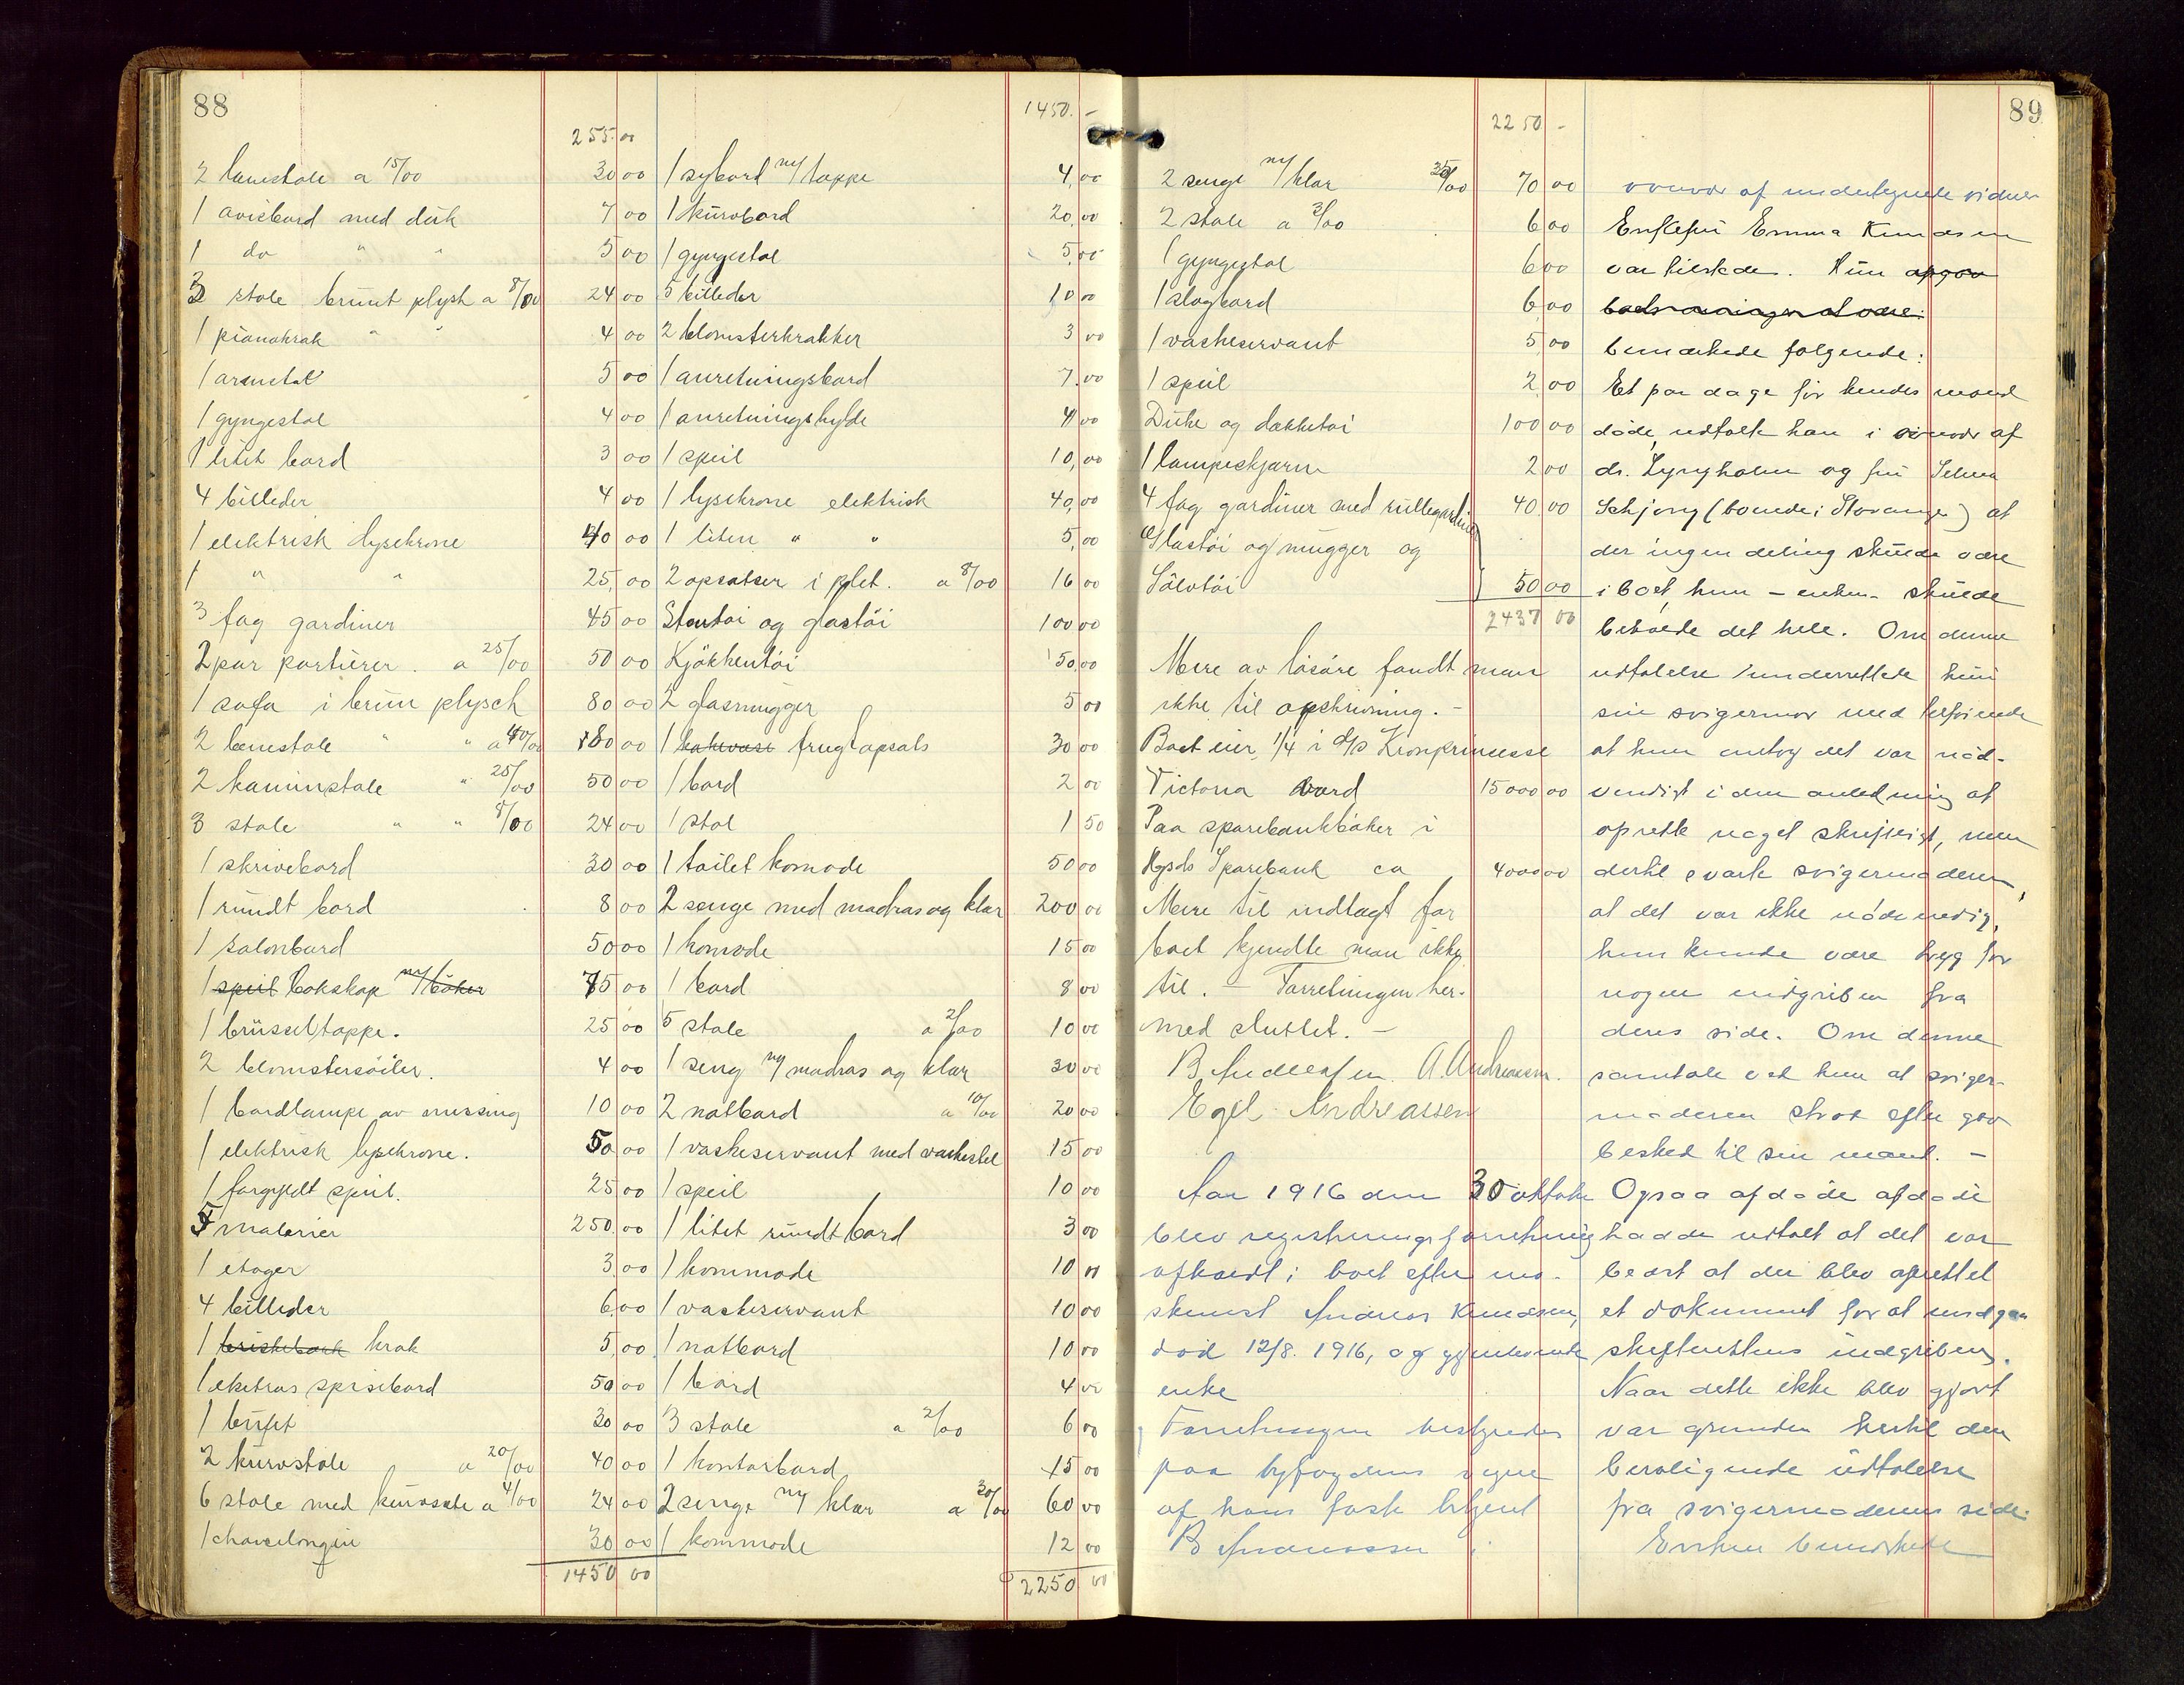 88
255.00
2 lænestole a 15/00 30 00
1 avisbord med duk 7 00
1 do " " 5 00
3 stole brunt plysh a 8/00 24 00
1 pianokrak " " 4 00
1 armstol 5 00
1 gyngestol 4 00
1 litet bord 3 00
4 billeder 4 00
1 elektrisk lysekrone 40 00
1 " " 25,00
3 fag gardiner 45 00
2 par portierer. a 25/00 50 00
1 sofa i brun plysch 80 00
2 lænestole " " a 40/00 80 00
2 kaminstole " 25/00 50 00
3 stole " " 8/00 24 00
1 skrivebord 30 00
1 rundt bord 8 00
1 salonbord 50 00
1 speil bokskap m/ bøker 75 00
1 brüsseltæppe. 25 00
2 blomstersøiler. 4 00
1 bordlampe av messing 10 00
1 elektrisk lysekrone. 50 00
1 forgyldt speil. 25 00
5 malerier 250.00
1 etager 3.00
4 billeder 6,00
1 krak 5,00
1 eketræs spisebord 50 00
1 buffet 30 00
2 kurvstole a 20/00 40 00
6 stole med kurvsæte a 4/00 24 00
1 chaiselongue 30 00
1450 00
1450.-
1 sybord m/ tæppe 4,00
1 kurvbord 20,00
1 gyngestol 5,00
5 billeder 10 00
2 blomsterkrakker 3 00
1 anretningsbord 7.00
1 anretningshylde 4 00
1 speil 10,00
1 lysekrone elektrisk 40,00
1 liten " " 5,00
2 opsatser i plet. a 8/00 16 00
Stentøi og glastøi 100 00
Kjøkkentøi 50.00
2 glasmugger 5 00
1 kakevase frugtopsats 30 00
1 bord 2 00
1 stol 1 50
1 toilet komode 50 00
2 senge med madras og klær 200 00
1 komode 15 00
1 bord 8 00
5 stole a 2/00 10 00
1 seng m/ madras og klær 30 00
2 natbord a 10/00 20 00
1 vaskeservant med vaskestel 15 00
1 speil 10 00
1 litet rundt bord 3 00
1 kommode 10 00
1 vaskeservant 10 00
1 natbord 10 00
1 bord 4 00
3 stole a 2/00 6 00
1 kontorbord 15 00
2 senge m/ klær a 30/00 60 00
1 kommode 12 00
2250 00
89
2250 -
2 senge m/ klær 35/00 70 00
2 stole a 3/00 6 00
1 gyngestol 6 00
1 slagbord 6,00
1 vaskeservant 5,00
1 speil 2,00
Duke og dækketøi 100 00
1 lampeskjærm 2 00
4 fag gardiner med rullegardiner 40 00
Glastøi og mugger og
Sølvtøi 50 00
2437 00
Mere av løsøre fandt man
ikke til opskrivning. -
Boet eier 1/4 i d/s Kronprinsesse
Victoria værd 15000 00
Paa sparebankbøker i
Hgsds Sparebank ca 4000 00
Mere til indtægt for
boet kjendte man ikke
til. - Forretningen her-
med sluttet. -
B Andreassen. A. Andreassen.
Egel Andreassen
Aar 1916 den 30 oktober
blev registreringsforretning
afholdt i boet efter ma-
skinist Andreas Knudsen,
død 12/8. 1916, og gjenlevende
enke
Forretningen bestyredes
paa byfogdens vegne
af hans faste betjent
B Andreassen i
overvær af undertegnede vidner
Enkefru Emma Knudsen
var tilstede. Hun opgav
bemærkede følgende:
Et par dage før hendes mand
døde, udtalte han i overvær af
dr. Lyngholm og fru Selma
Schjong (boende i Stavanger) at
der ingen deling skulde være
i boet, hun - enken - skulde
beholde det hele. Om denne
udtalelse underrettede hun
sin svigermor med tilføiende
at hun antog det var nød-
vendigt i den anledning at
oprette noget skriftligt, men
dertil svarte svigermoderen,
at det var ikke nødvendig,
hun kunde være tryg for
nogen indgriben fra
deres side. Om denne
samtale vet hun at sviger-
moderen strax efter gav
besked til sin mand. -
Ogsaa afdøde afdøde
hadde udtalt at det var
bedst at der blev oprettet
et dokument for at undgaa
skifterettens indgriben.
Naar dette ikke blev gjort
var grunden hertil den
beroligende udtalelse
fra svigermoderens side.
Enken bemærkede